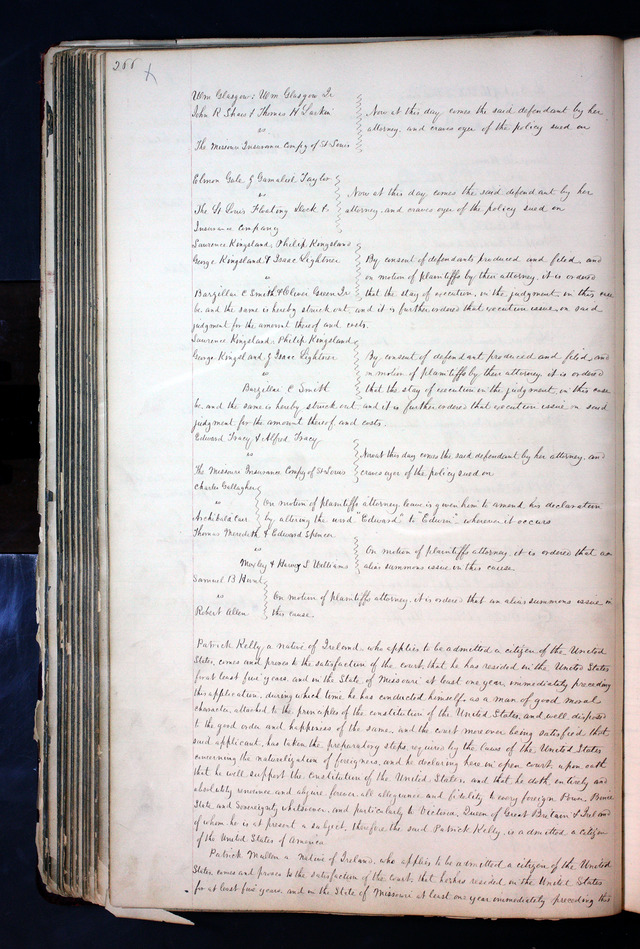 266
Wm Glasgow, Wm Glasgow Jr
John R Shaw & Thomas H Larkin
vs
The Missouri Insurance Compy of St Louis
Now at this day comes the said defendant by her
attorney, and craves oyer of the policy sued on
Elmon Gale & Gamaliel Taylor
vs
The St Louis Floating Dock &
Insurance Company
Now at this day comes the said defendant by her
attorney, and craves oyer of the policy sued on
Lawrence Kingsland, Philip Kingsland
George Kingsland & Isaac Lightner
vs
Barzillai C Smith & Oliver Green Jr
By consent of defendants produced and filed, and
on motion of plaintiffs by their attorney, it is ordered
that the stay of execution, in the judgment, in this case
be, and the same is hereby struck out, and it is further ordered that execution issue on said
judgment for the amount thereof and costs.
Lawrence Kingsland, Philip Kingsland
George Kingsland & Isaac Lightner
vs
Barzillai C Smith
By consent of defendant produced and filed, and
on motion of plaintiffs by their attorney it is ordered
that the stay of execution in the judgment, in this case
be, and the same is hereby struck out and it is further ordered that execution issue on said
judgment for the amount thereof and costs.
Edward Tracy & Alfred Tracy
vs
The Missouri Insurance Compy of St Louis
Now at this day comes the said defendant by her attorney, and
craves oyer of the policy sued on
Charles Gallagher
vs
Archibald Carr
On motion of plaintiffs attorney, leave is given him to amend his declaration
by altering the word "Edward" to "Edwin" wherever it occurs
Thomas Meredith & Edward Spencer
vs
Moxley & Harvey S Williams
On motion of plaintiffs attorney it is ordered that an
alias summons issue in this cause.
Samuel B Hunt
vs
Robert Allen
On motion of plaintiffs attorney, it is ordered that an alias summons issue in
this cause.
Patrick Kelly, a native of Ireland, who applies to be admitted a citizen of the United
States, comes and proves to the satisfaction of the court, that he has resided in the United States
for at least five years, and in the State of Missouri at least one year, immediately preceding
this application, during which time he has conducted himself, as a man of good moral
character, attached to the principles of the constitution of the United States, and well disposed
to the good order and happiness of the same, and the court moreover being satisfied that
said applicant, has taken the preparatory steps, required by the laws of the United States
concerning the naturalization of foreigners, and he declaring here in open court, upon oath
that he will support the constitution of the United States, and that he doth, entirely and
absolutely renounce and abjure, forever, all allegiance and fidelity to every foreign Power, Prince
State, and Sovereignty whatsoever, and particularly to Victoria, Queen of Great Britain & Ireland
of whom he is at present a subject, therefore the said Patrick Kelly, is admitted a citizen
of the United States of America.
Patrick Mullen a native of Ireland, who applies to be admitted a citizen of the United
States, comes and proves to the satisfaction of the court, that he has resided in the United States
for at least five years, and in the State of Missouri at least one year immediately preceding this